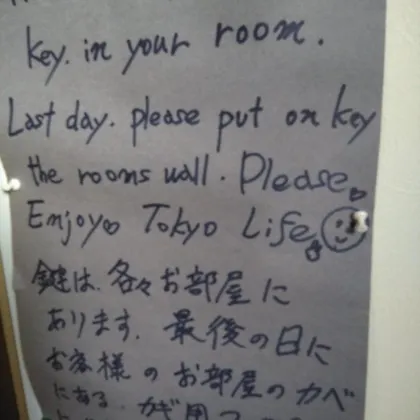 key. in your room.
Last day. please put on key
the rooms wall. Please
Enjoy Tokyo Life
鍵は、各々お部屋に
あります。最後の日に
お客様のお部屋のカベ
にある カギ用フ